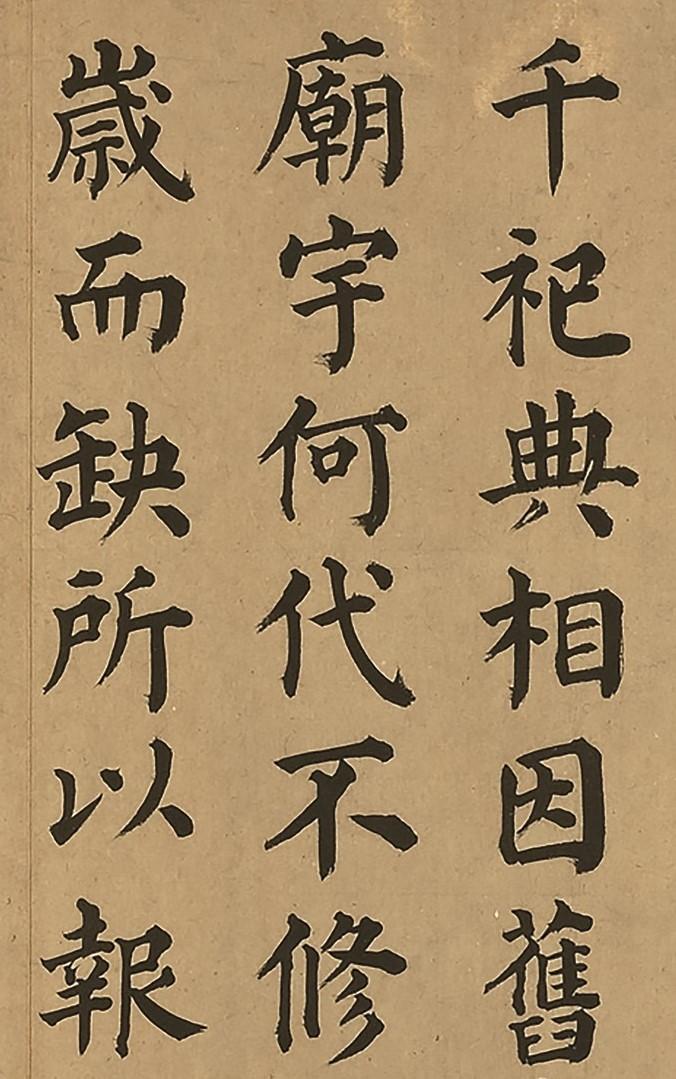 千祀典相因舊
廟宇何代不修
歲而缺所以報